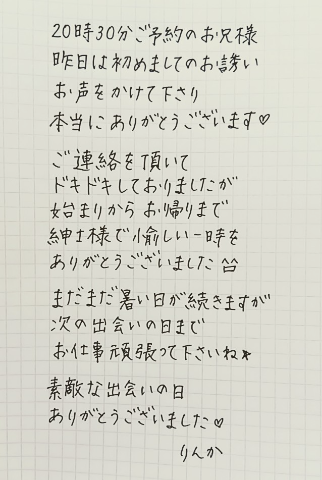 20時30分ご予約のお兄様
昨日は初めましてのお誘い
お声をかけて下さり
本当にありがとうございます♡
ご連絡を頂いて
ドキドキしておりましたが
始まりからお帰りまで
紳士様で愉しい一時を
ありがとうございました^^
まだまだ暑い日が続きますが
次の出会いの日まで
お仕事頑張って下さいね★
素敵な出会いの日
ありがとうございました♡
りんか